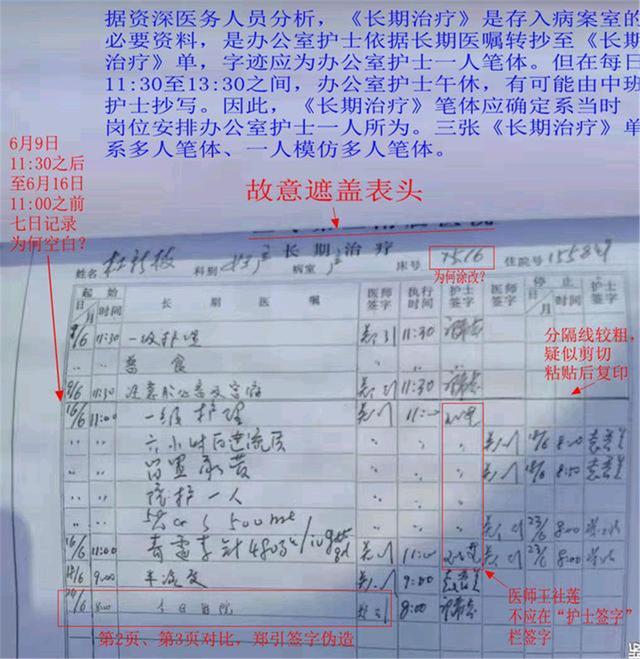 据资深医务人员分析，《长期治疗》是存入病案室的
必要资料，是办公室护士依据长期医嘱转抄至《长期
治疗》单，字迹应为办公室护士一人笔体。但在每日
11:30至13:30之间，办公室护士午休，有可能由中班
护士抄写。因此，《长期治疗》笔体应确定系当时
岗位安排办公室护士一人所为。三张《长期治疗》单
系多人笔体、一人模仿多人笔体。
6月9日
11:30之后
至6月16日
11:00之前
七日记录
为何空白？
故意遮盖表头
长期治疗
姓名 科别 妇产 病室 产 床号 7516 住院号 155849
为何涂改？
起始 长期医嘱 医师签字 执行时间 护士签字 医师签字 停止 护士签字
日/月 时间 日/月 时间
9/6 11:30 一级护理 11:30
〃 〃 普食
9/6 11:30 注意胎心音及宫缩 11:30
16/6 11:00 一级护理 11:00
〃 〃 六小时后进流质 8:00
〃 〃 留置尿管 8:00
〃 〃 陪护一人
500ml 23/6 8:00
16/6 11:00 青霉素针480万 ivgtt 11:00 23/6 8:00
18/6 9:00 半流质 9:00
8:00 今日出院 8:00
分隔线较粗，
疑似剪切
粘贴后复印
医师王社莲
不应在“护士签字”
栏签字
第2页、第3页对比，郑引签字伪造